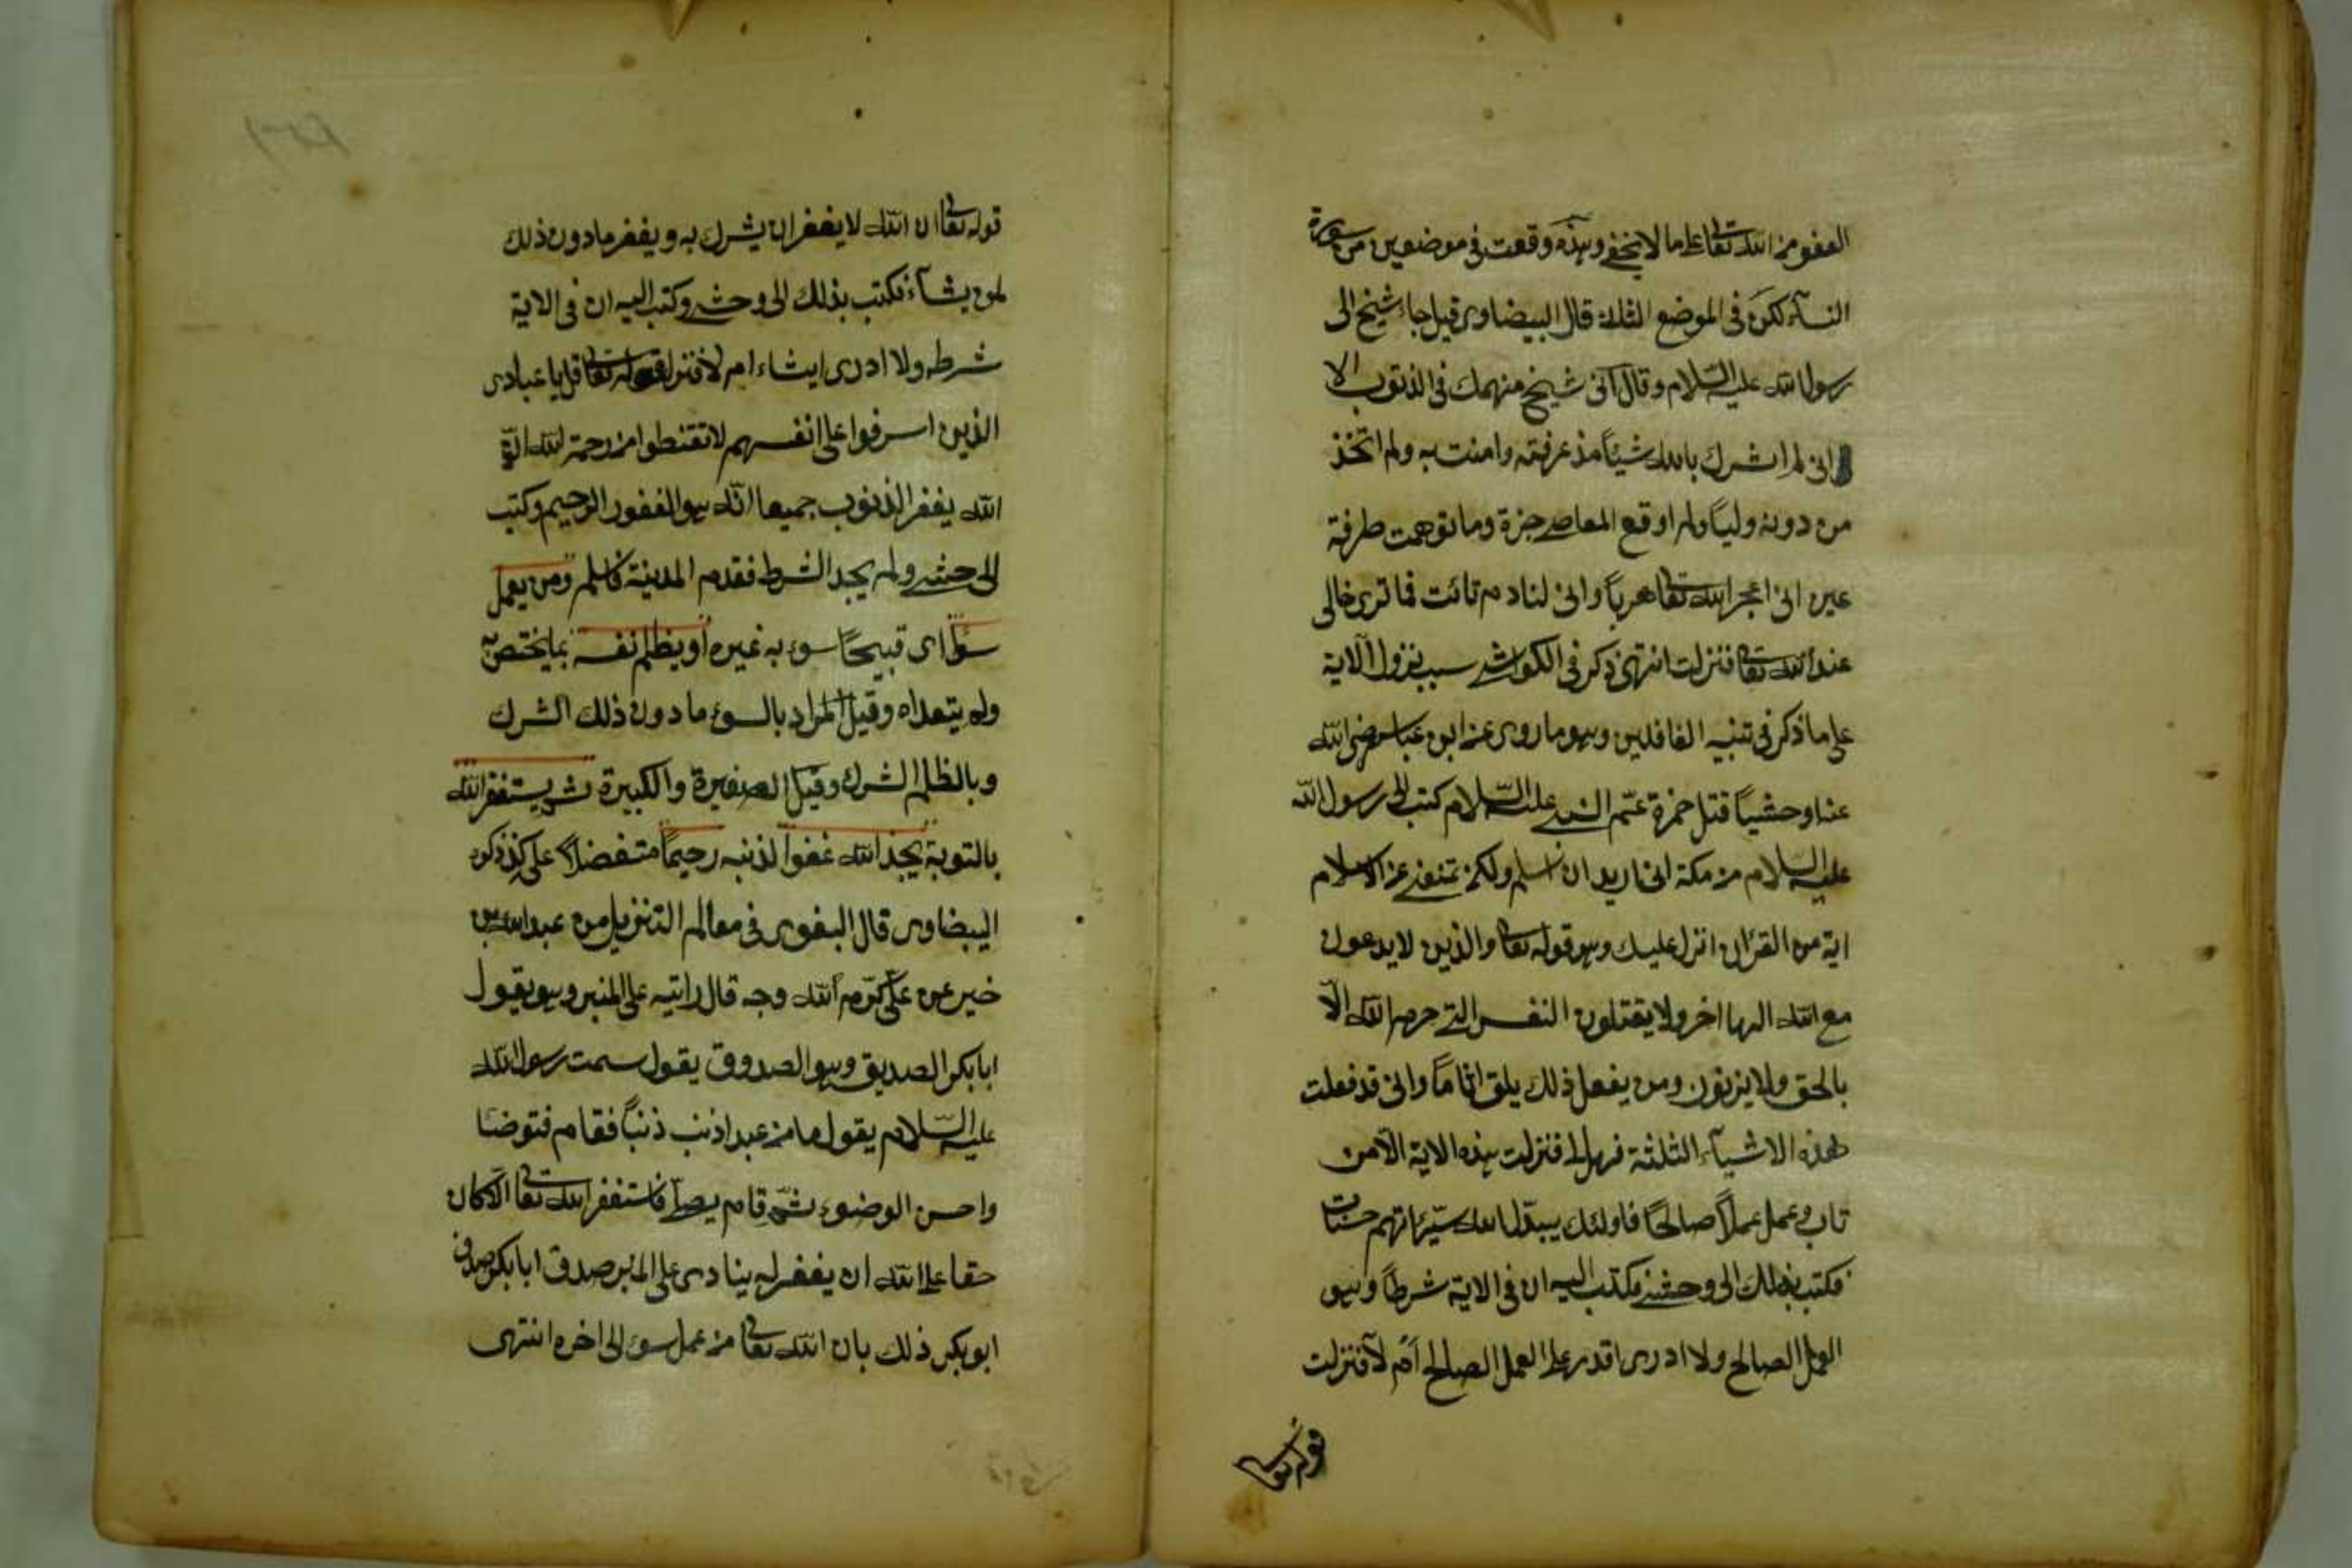 العفو من الله تعا على ما لا يخفى وهذه وقعت فى موضعين من سورة
النسآء لكن فى الموضع الثلث قال البيضاوى قيل جاء شيخ الى
رسول الله عليه السّلام وقال انى شيخ منهمك فى الذنوب الا
انى لم اشرك بالله شيئاً مذ عرفته وامنت به ولم اتّخذ
من دونه وليّاً ولم اوقع المعاصى جزة وما توهمت طرفة
عين انى اعجز الله تعا هرباً وانى لنادم تائت فما ترى حالى
عند الله تعا فنزلت انتهى ذكر فى الكواشى سبب نزول الاية
على ما ذكر فى تنبيه الغافلين وهو ما روى عن ابن عباس رضى الله
عنه ا وحشيّاً قتل حمزة عمّ النبى عليه السّلام كتب الى رسول الله
عليه السّلام من مكة انى اريد ان اسلم ولكن تمنعنى عن الاسلام
اية من القرآن انزل عليك وهو قوله تعا والذين لا يدعون
مع الله الها اخر ولا يقتلون النفس التى حرم الله الّا
بالحق ولا يزنون ومن يفعل ذلك يلق اثاماً وانى قد فعلت
هذه الاشيآء الثلثة فهل لى فنزلت هذه الاية الّا من
تاب وعمل عملاً صالحًا فاولئك يبدّل الله سيّئاتهم حسنات
فكتب بذلك الى وحشى فكتب اليه ان فى الاية شرطاً وهو
العمل الصالح ولا ادرى اقدر على العمل الصالح ام لا فنزلت
قوله تعا
قوله تعا ان الله لا يغفر ان يشرك به ويغفر ما دون ذلك
لمن يشآء فكتب بذلك الى وحشى وكتب اليه ان فى الاية
شرطه ولا ادرى ايشاء ام لا فنزل قوله تعا قل يا عبادى
الذين اسرفوا على انفسهم لا تقنطوا من رحمة الله انّ
الله يغفر الذنوب جميعا انّه هو الغفور الرحيم وكتب
الى حشى ولم يجد الشرط فقدم المدينة فاسلم ومن يعمل
سوأ اى قبيحًا سوء به غيره او يظلم نفسه بما يختص به
ولم يتعداه وقيل المراد بالسوء ما دون ذلك الشرك
وبالظلم الشرك وقيل الصغيرة والكبيرة ثم يستغفر الله
بالتوبة يجد الله غفوا لذنبه رحيمًا متفضلاً على كذ ذكره
البيضاوى قال البغوى فى معالم التنزيل من عبد الله بن
خير عن علىّ كرّم الله وجه قال رايته على المنبر وهو يقول
ابا بكر الصديق وهو الصدوق يقول سمت رسول الله
عليه السّلام يقول ما من عبد اذنب ذنباً فقام فتوضئا
واحسن الوضوء ثمّ قام يصلى فاستغفر الله تعا الّا كان
حقا على الله ان يغفر له ينادى على المنبر صدق ابا بكر صدق
ابو بكر ذلك بان الله تعا من عمل سوء الى اخره انتهى